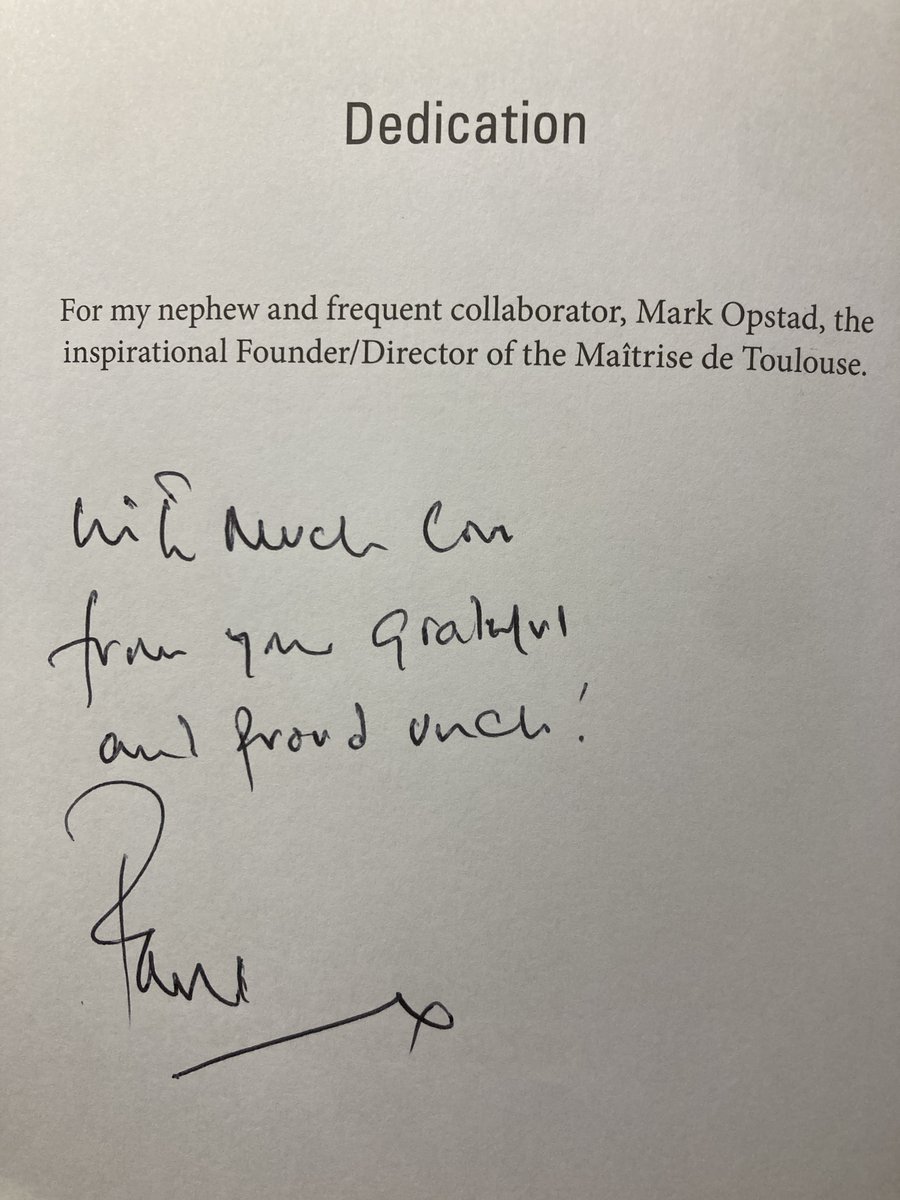 Dedication
For my nephew and frequent collaborator, Mark Opstad, the
inspirational Founder/Director of the Maîtrise de Toulouse.
With Much Love
from your grateful
and proud uncle!
Paul
x